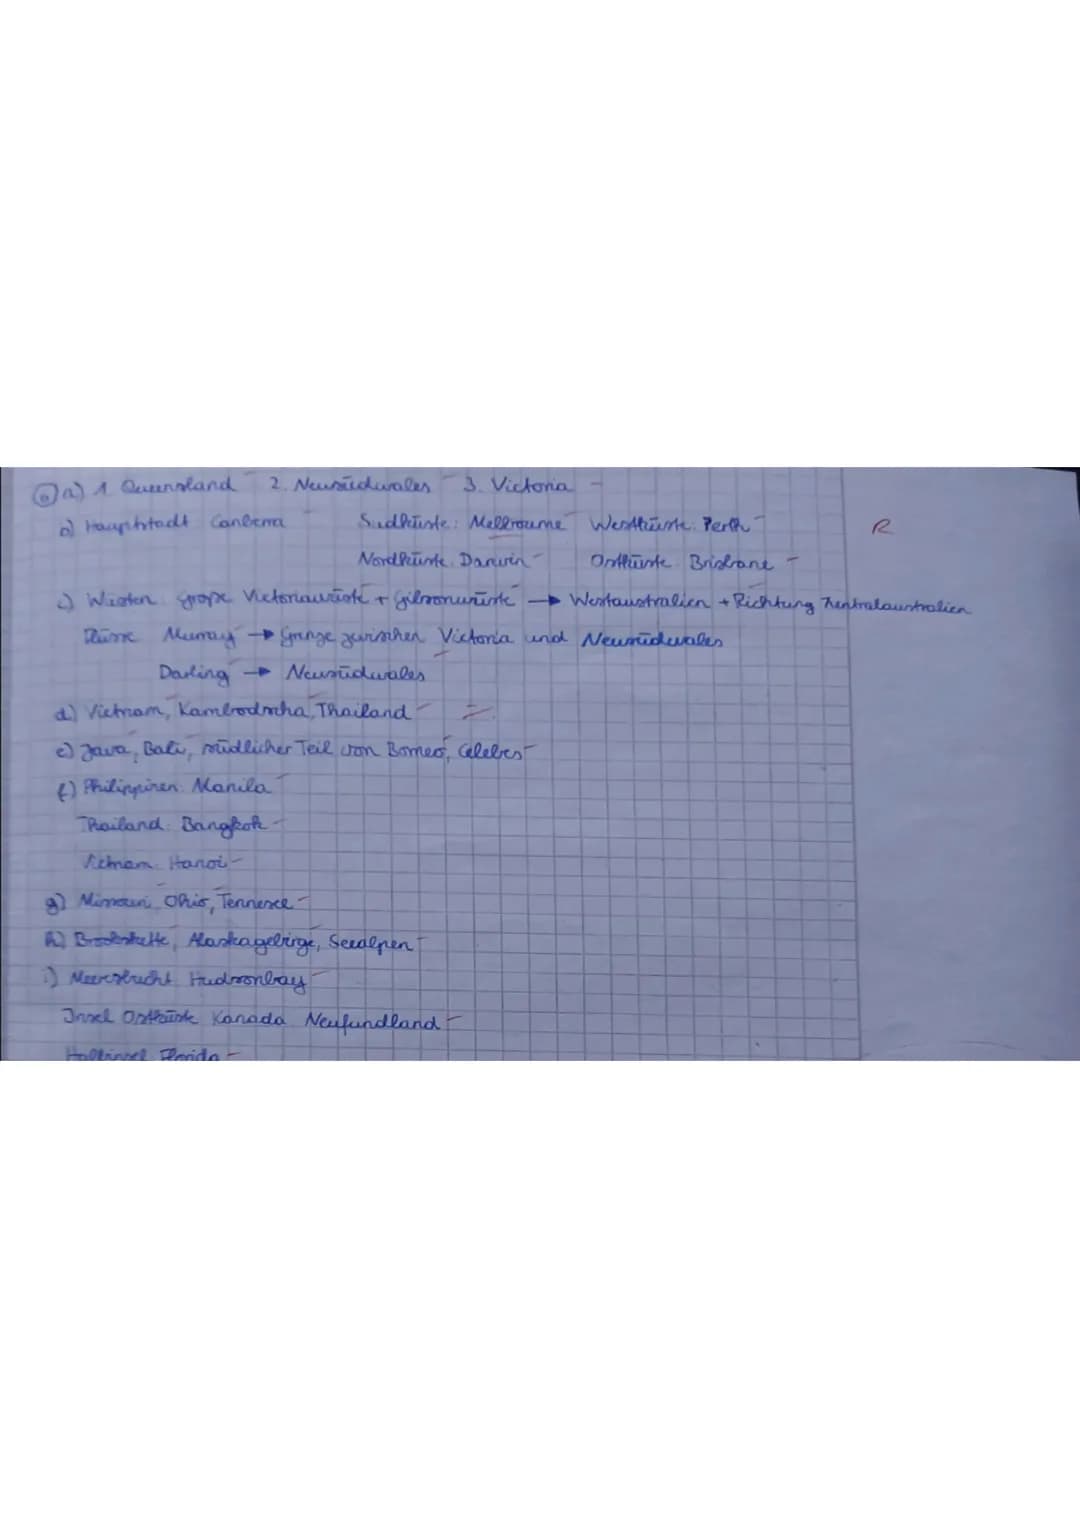 6 a) 1. Queensland 2. Neusüdwales 3. Victoria
b) Hauptstadt Canberra Südküste: Mellbourne Westküste: Perth R
Nordküste: Darwin Ostküste: Brisbane
c) Wüsten: große Victoriawüste + Gibsonwüste → Westaustralien + Richtung Zentralaustralien
Flüsse: Murray → Grenze zwischen Victoria und Neusüdwales
Darling → Neusüdwales
d) Vietnam, Kambodscha, Thailand
e) Java, Bali, südlicher Teil von Borneo, Celebes
f) Philippinen: Manila
Thailand: Bangkok
Vietnam: Hanoi
g) Missouri, Ohio, Tennesee
h) Brookskette, Alaskagebirge, Seealpen
i) Meeresbucht: Hudsonbay
Insel Ostküste Kanada: Neufundland
Halbinsel: Florida